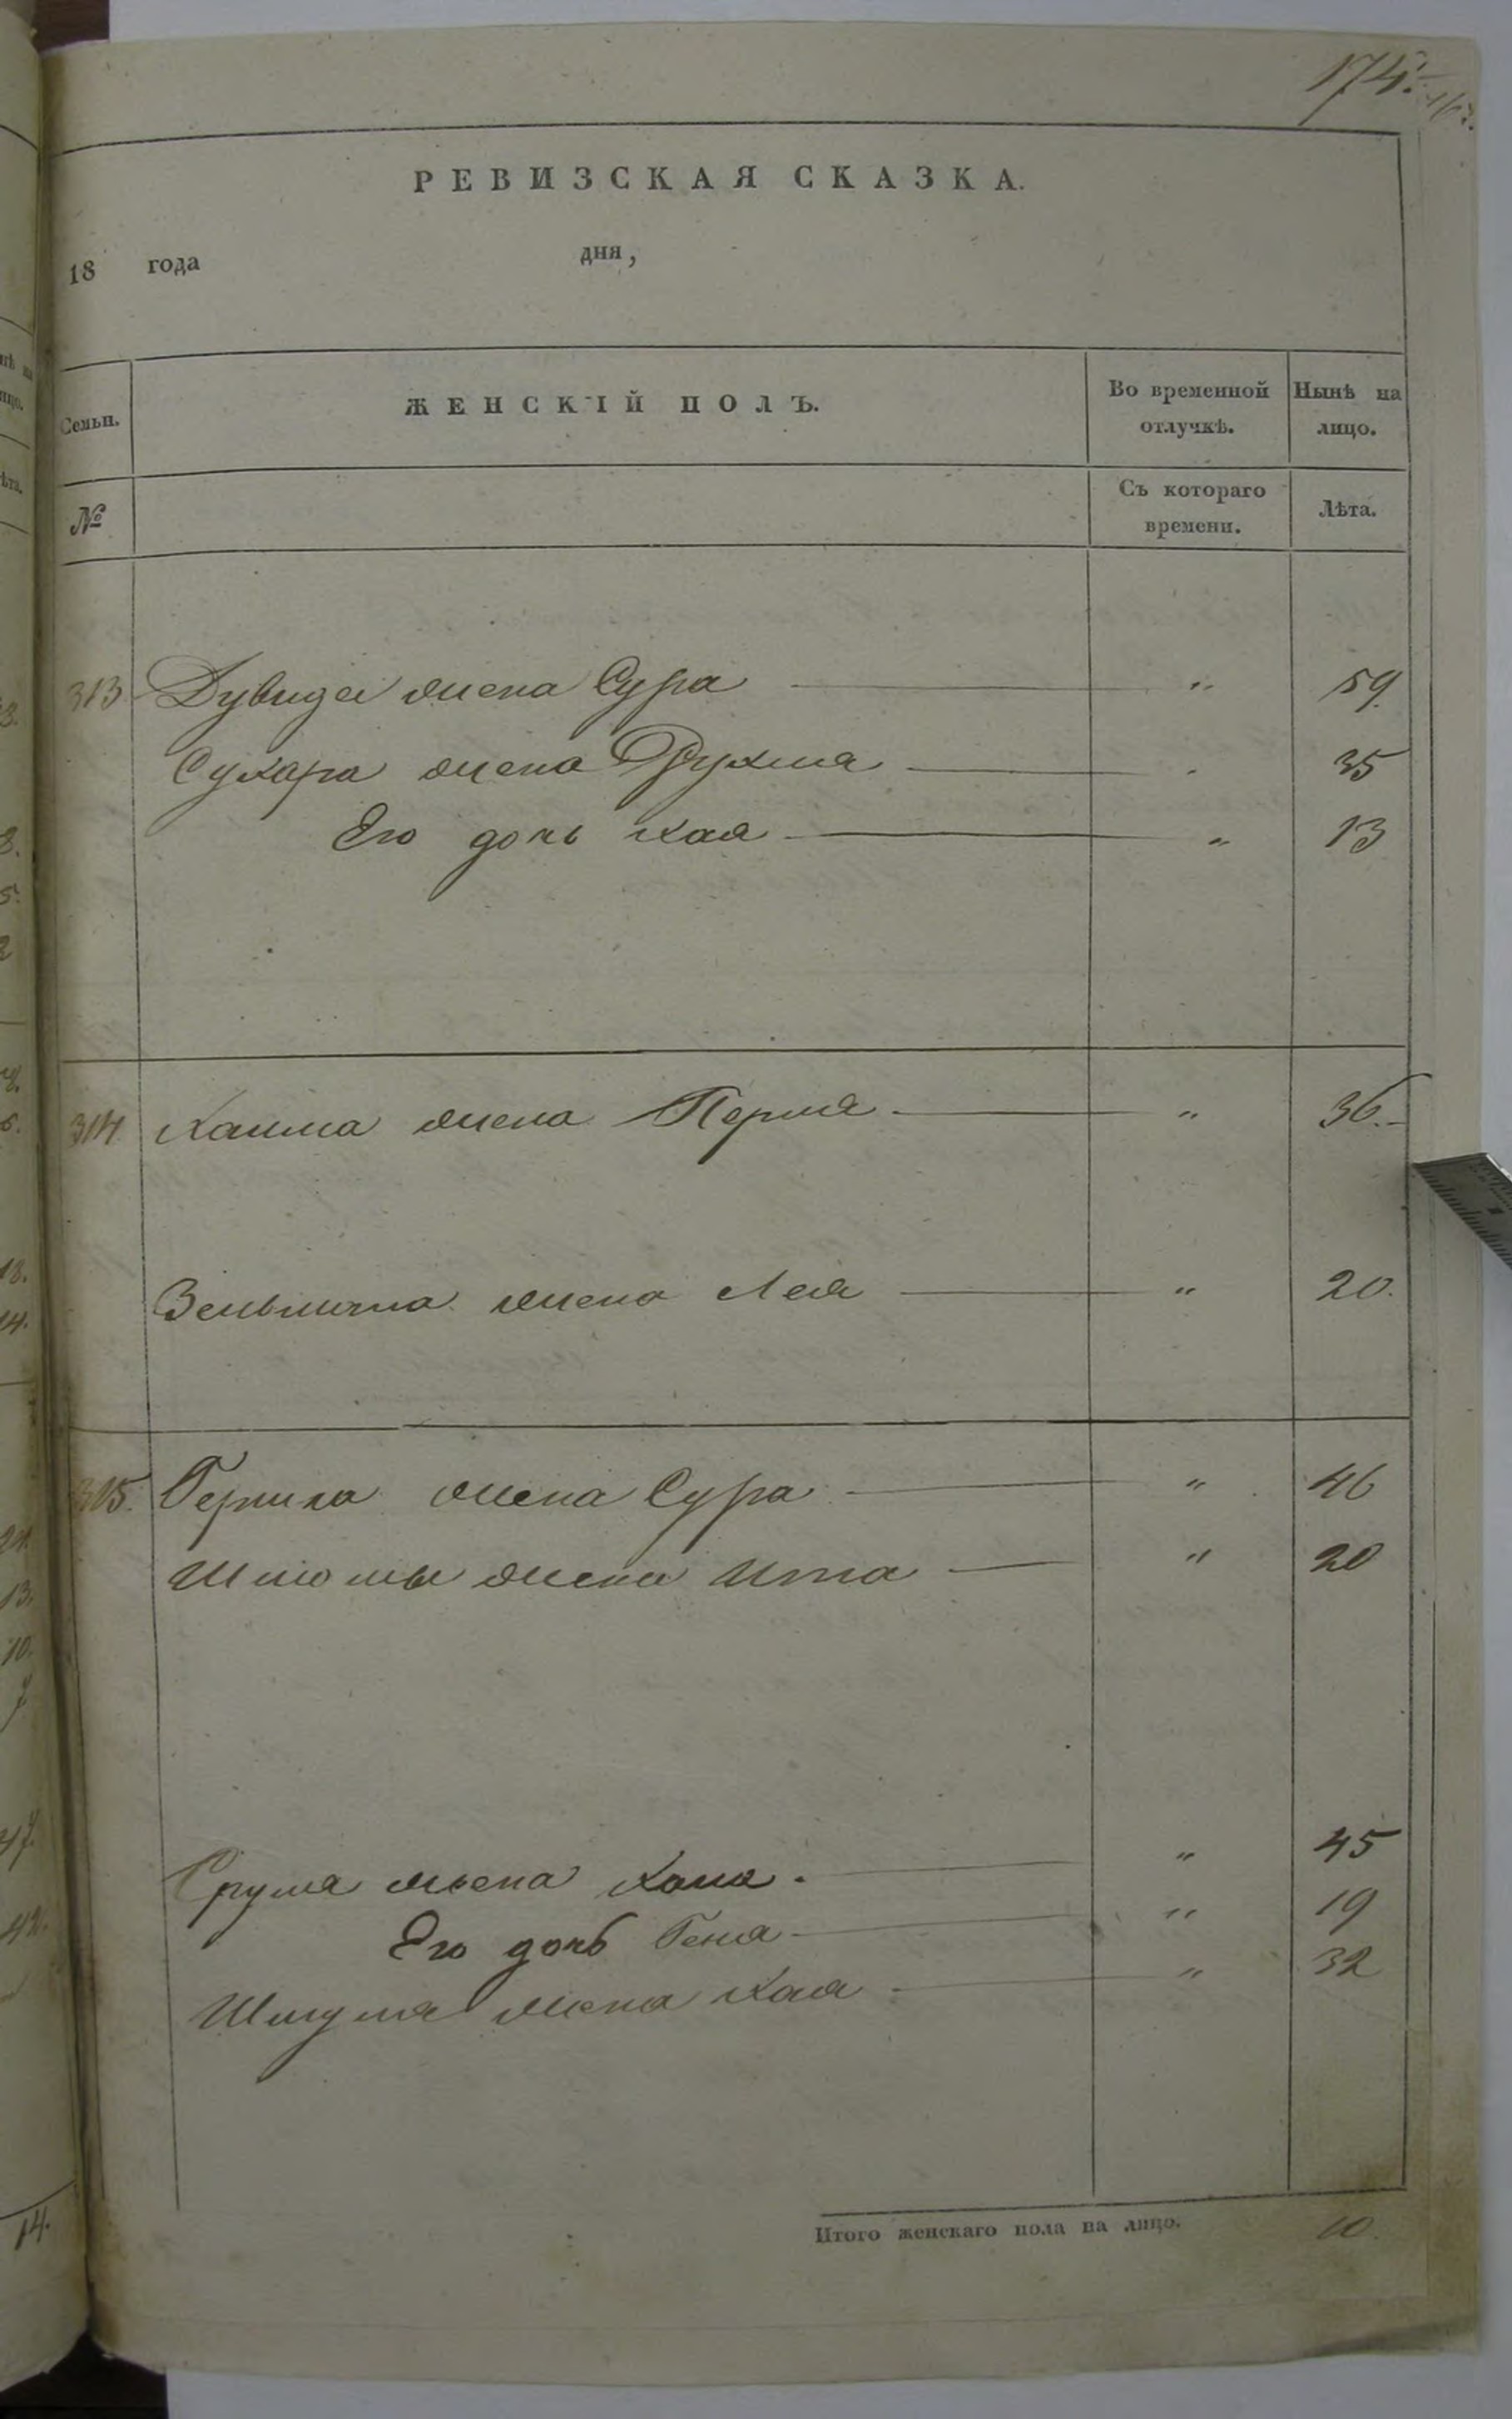 174.
РЕВИЗСКАЯ СКАЗКА.
18 года дня,
Семьи. ЖЕНСКІЙ ПОЛЪ. Во временной отлучкѣ. Нынѣ на лицо.
№ Съ котораго времени. Лѣта.
313 Дувида жена Сура " 59
Сухара жена Фрухма " 35
Его дочь Хая " 13
314 Хаима жена Перля " 36.
Зельмана жена Лея " 20.
315. Гершка жена Сура " 46
Шлюмы жена Ита " 20
Срумя жена Хана. " 45
Его дочь Геня " 19
Шмуля жена Хая " 32
Итого женскаго пола на лицо. 10.